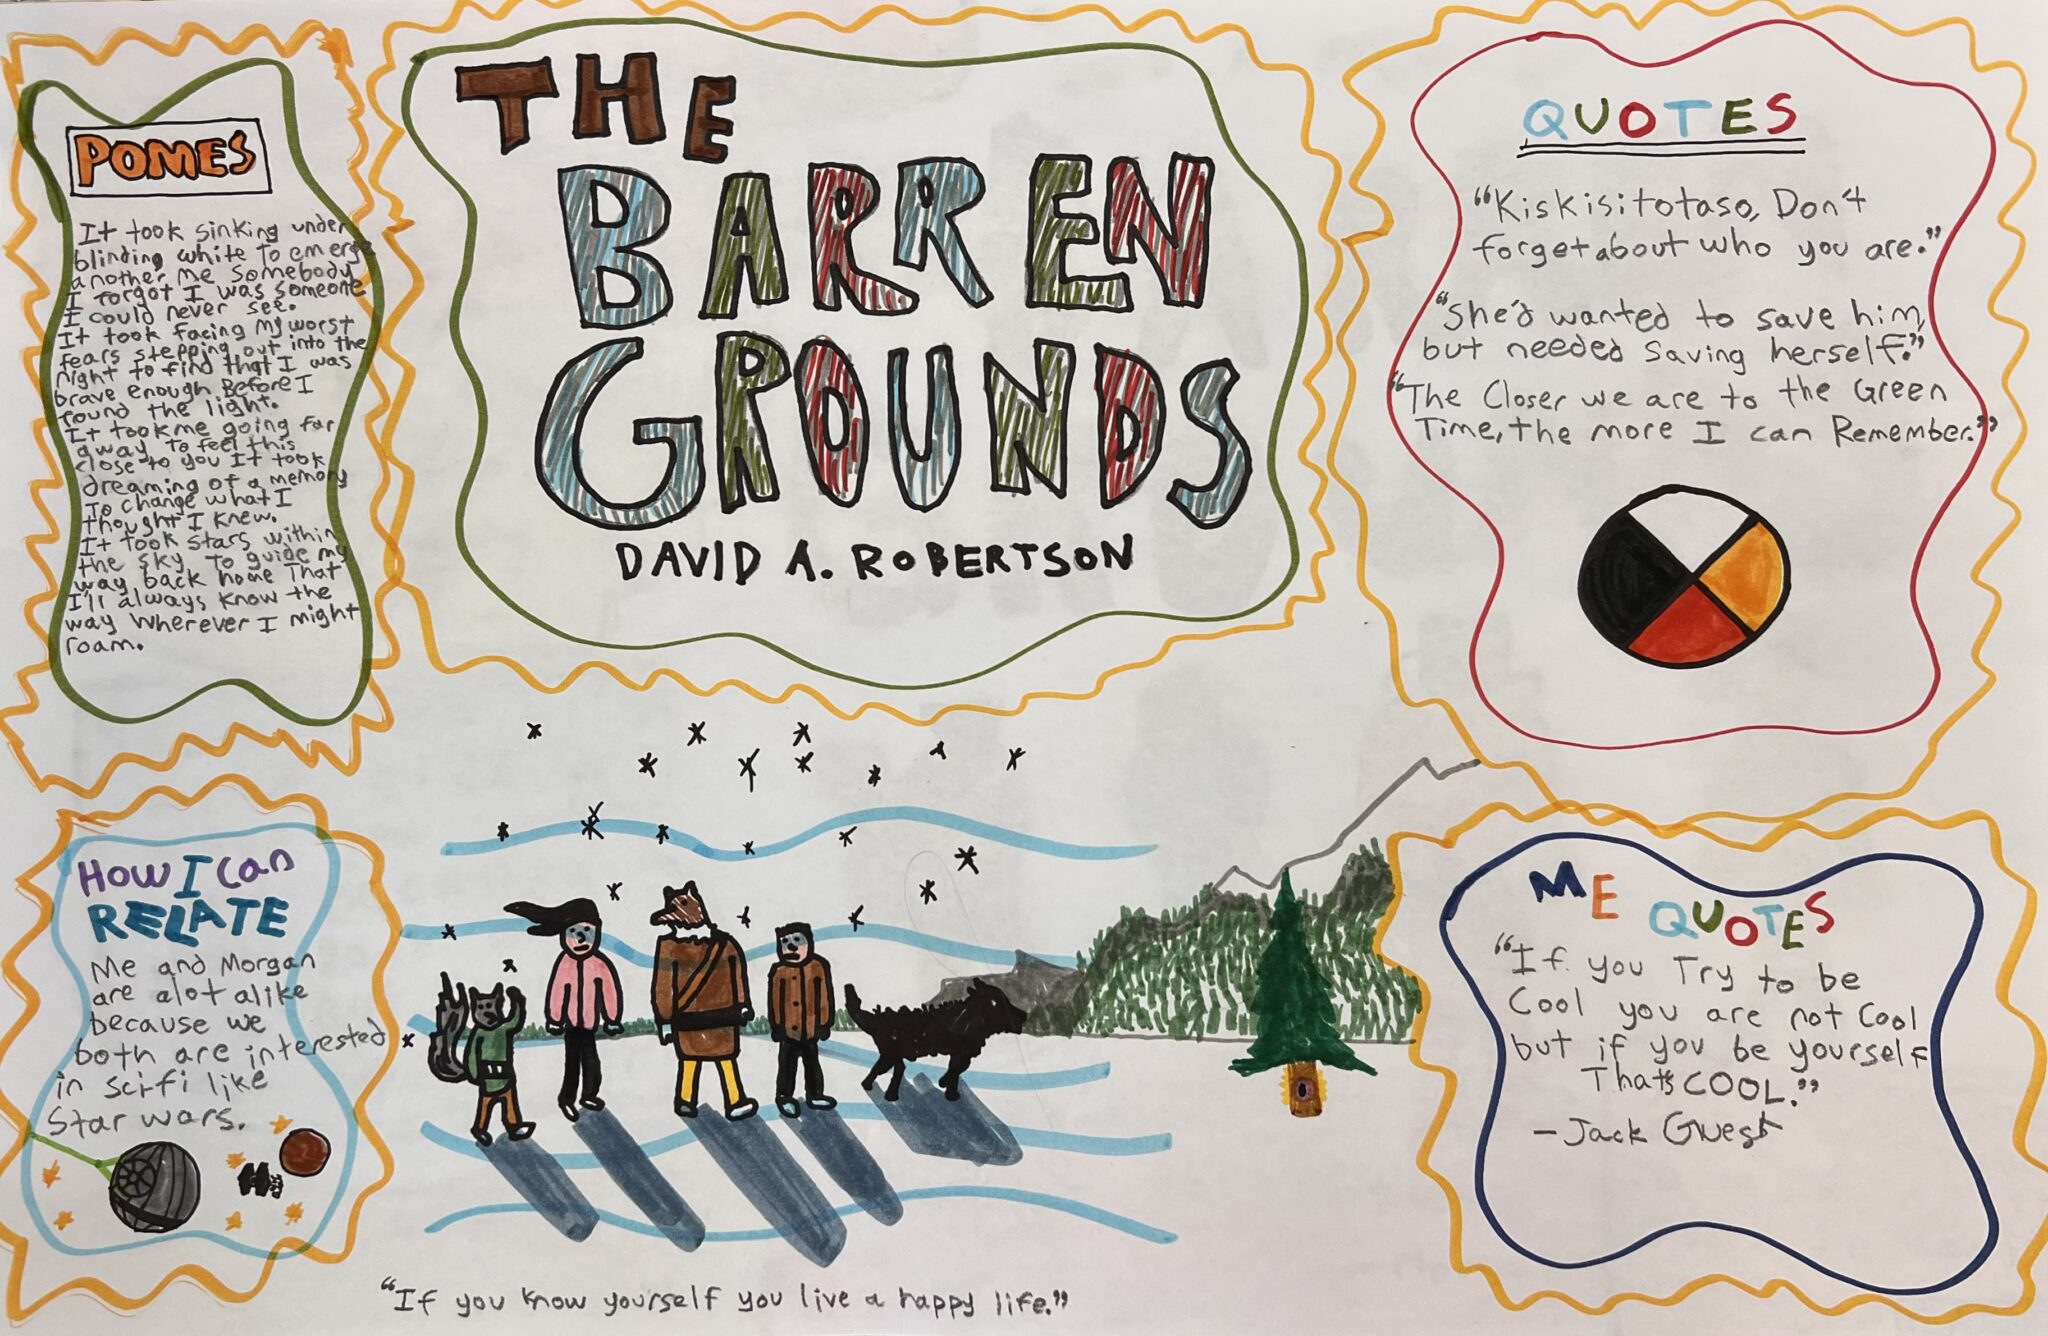 THE
BARREN
GROUNDS
DAVID A. ROBERTSON
POMES
It took sinking under
blinding white To emerge
another me Somebody
I forgot I was someone
I could never see.
It took facing my worst
fears stepping out into the
night to find that I was
brave enough Before I
found the light.
It took me going far
away To feel this
close to you It took
dreaming of a memory
To change what I
thought I knew.
It took stars within
the sky To guide my
way back home That
I'll always know the
way Wherever I might
roam.
QUOTES
"Kiskisitotaso, Don't
forget about who you are."
"She'd wanted to save him,
but needed saving herself."
"The Closer we are to the Green
Time, the more I can Remember."
HOW I Can
RELATE
Me and Morgan
are alot alike
because we
both are interested
in sci-fi like
Star wars.
ME QUOTES
"If you Try to be
Cool you are not Cool
but if you be yourself
That's COOL."
- Jack Guest
"If you know yourself you live a happy life."